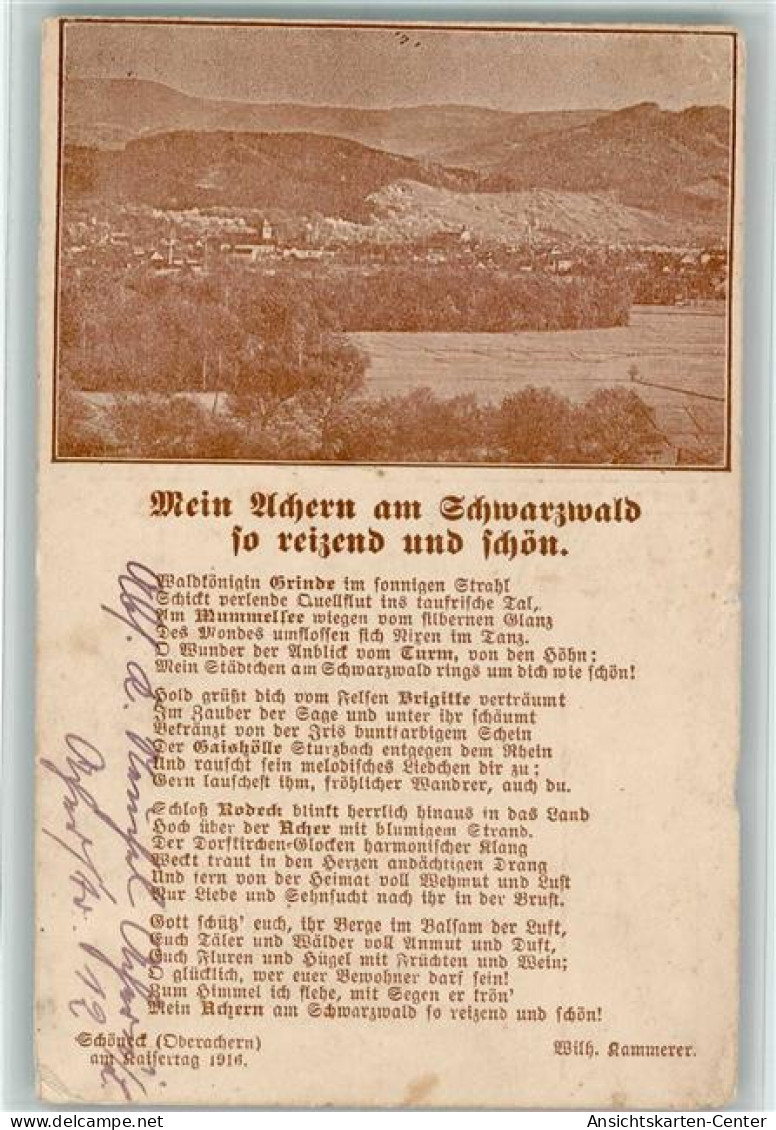 Mein Achern am Schwarzwald
so reizend und schön.
Waldkönigin Grinde im sonnigen Strahl
Schickt perlende Quellflut ins taufrische Tal,
Am Mummelsee wiegen vom silbernen Glanz
Des Mondes umflossen sich Nixen im Tanz.
O Wunder der Anblick vom Turm, von den Höhn:
Mein Städtchen am Schwarzwald rings um dich wie schön!
Hold grüßt dich vom Felsen Brigitte verträumt
Im Zauber der Sage und unter ihr schäumt
Bekränzt von der Iris buntfarbigem Schein
Der Gaishölle Sturzbach entgegen dem Rhein
Und rauscht sein melodisches Liedchen dir zu:
Gern lauschest ihm, fröhlicher Wandrer, auch du.
Schloß Rodeck blinkt herrlich hinaus in das Land
Hoch über der Acher mit blumigem Strand.
Der Dorfkirchen-Glocken harmonischer Klang
Weckt traut in den Herzen andächtigen Drang
Und fern von der Heimat voll Wehmut und Lust
Nur Liebe und Sehnsucht nach ihr in der Brust.
Gott schütz' euch, ihr Berge im Balsam der Luft,
Euch Täler und Wälder voll Anmut und Duft,
Euch Fluren und Hügel mit Früchten und Wein;
O glücklich, wer euer Bewohner darf sein!
Zum Himmel ich flehe, mit Segen er krön'
Mein Achern am Schwarzwald so reizend und schön!
Schöneck (Oberachern)
am Kaisertag 1916.
Wilh. Kammerer.
Abs. A.
12
Ansichtskarten-Center